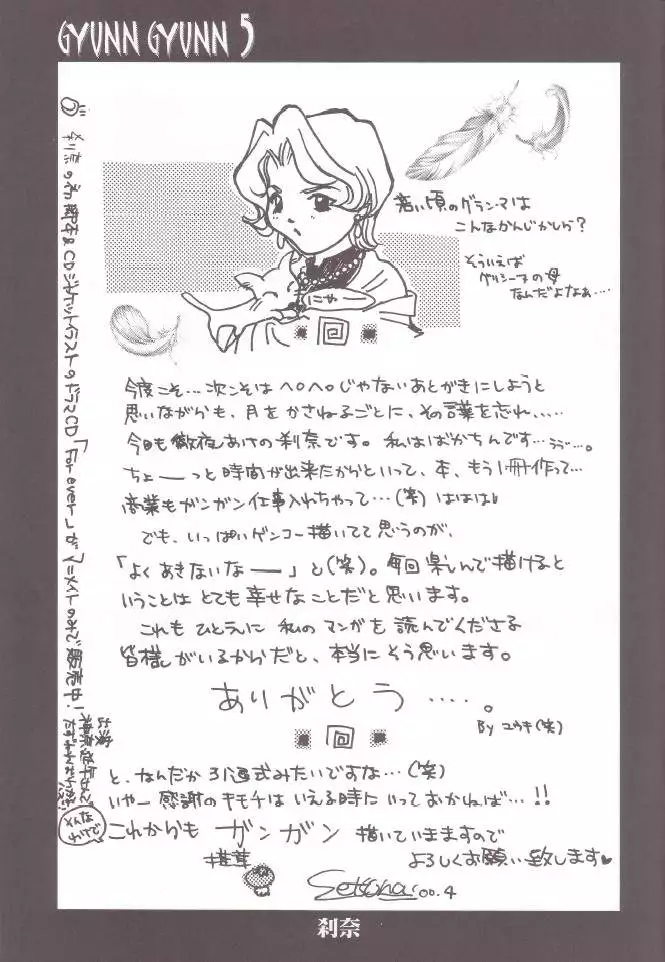 GYUNN GYUNN 5
若い頃のグランマは
こんなかんじかしら?
そういえば
グリシーヌの母
なんだよなぁ・・・・
にゃ
今度こそ…次こそはヘロヘロじゃないあとがきにしようと
思いながらも、月をかさねるごとに、その言葉を忘れ、……
今日も徹夜あけの刹奈です。私はばかちんです…ううっ…。
ちょーーっと時間が出来たからといって、本、もう1冊作って…
商業もガンガン仕事入れちゃって…(笑)ははは
でも、いっぱいゲンコー描いてて思うのが、
「よくあきないなー」と(笑)。毎回楽しんで描けると
いうことはとても幸せなことだと思います。
これもひとえに私のマンガを読んでくださる
皆様がいるからだと、本当にそう思います。
ありがとう….。
By ユウキ(笑)
と、なんだか引退式みたいですな…(笑)
いやー感謝のキモチはいえる時にいっておかねば…!!
これからもガンガン描いていきますので
よろしくお願い致します♥
椎茸
Setsuna. 00.4
刹奈の初
CDジャケットイラストのドラマCD「For ever…」がアニメイトのみで販売中!
出演
そんな
わけで
刹奈